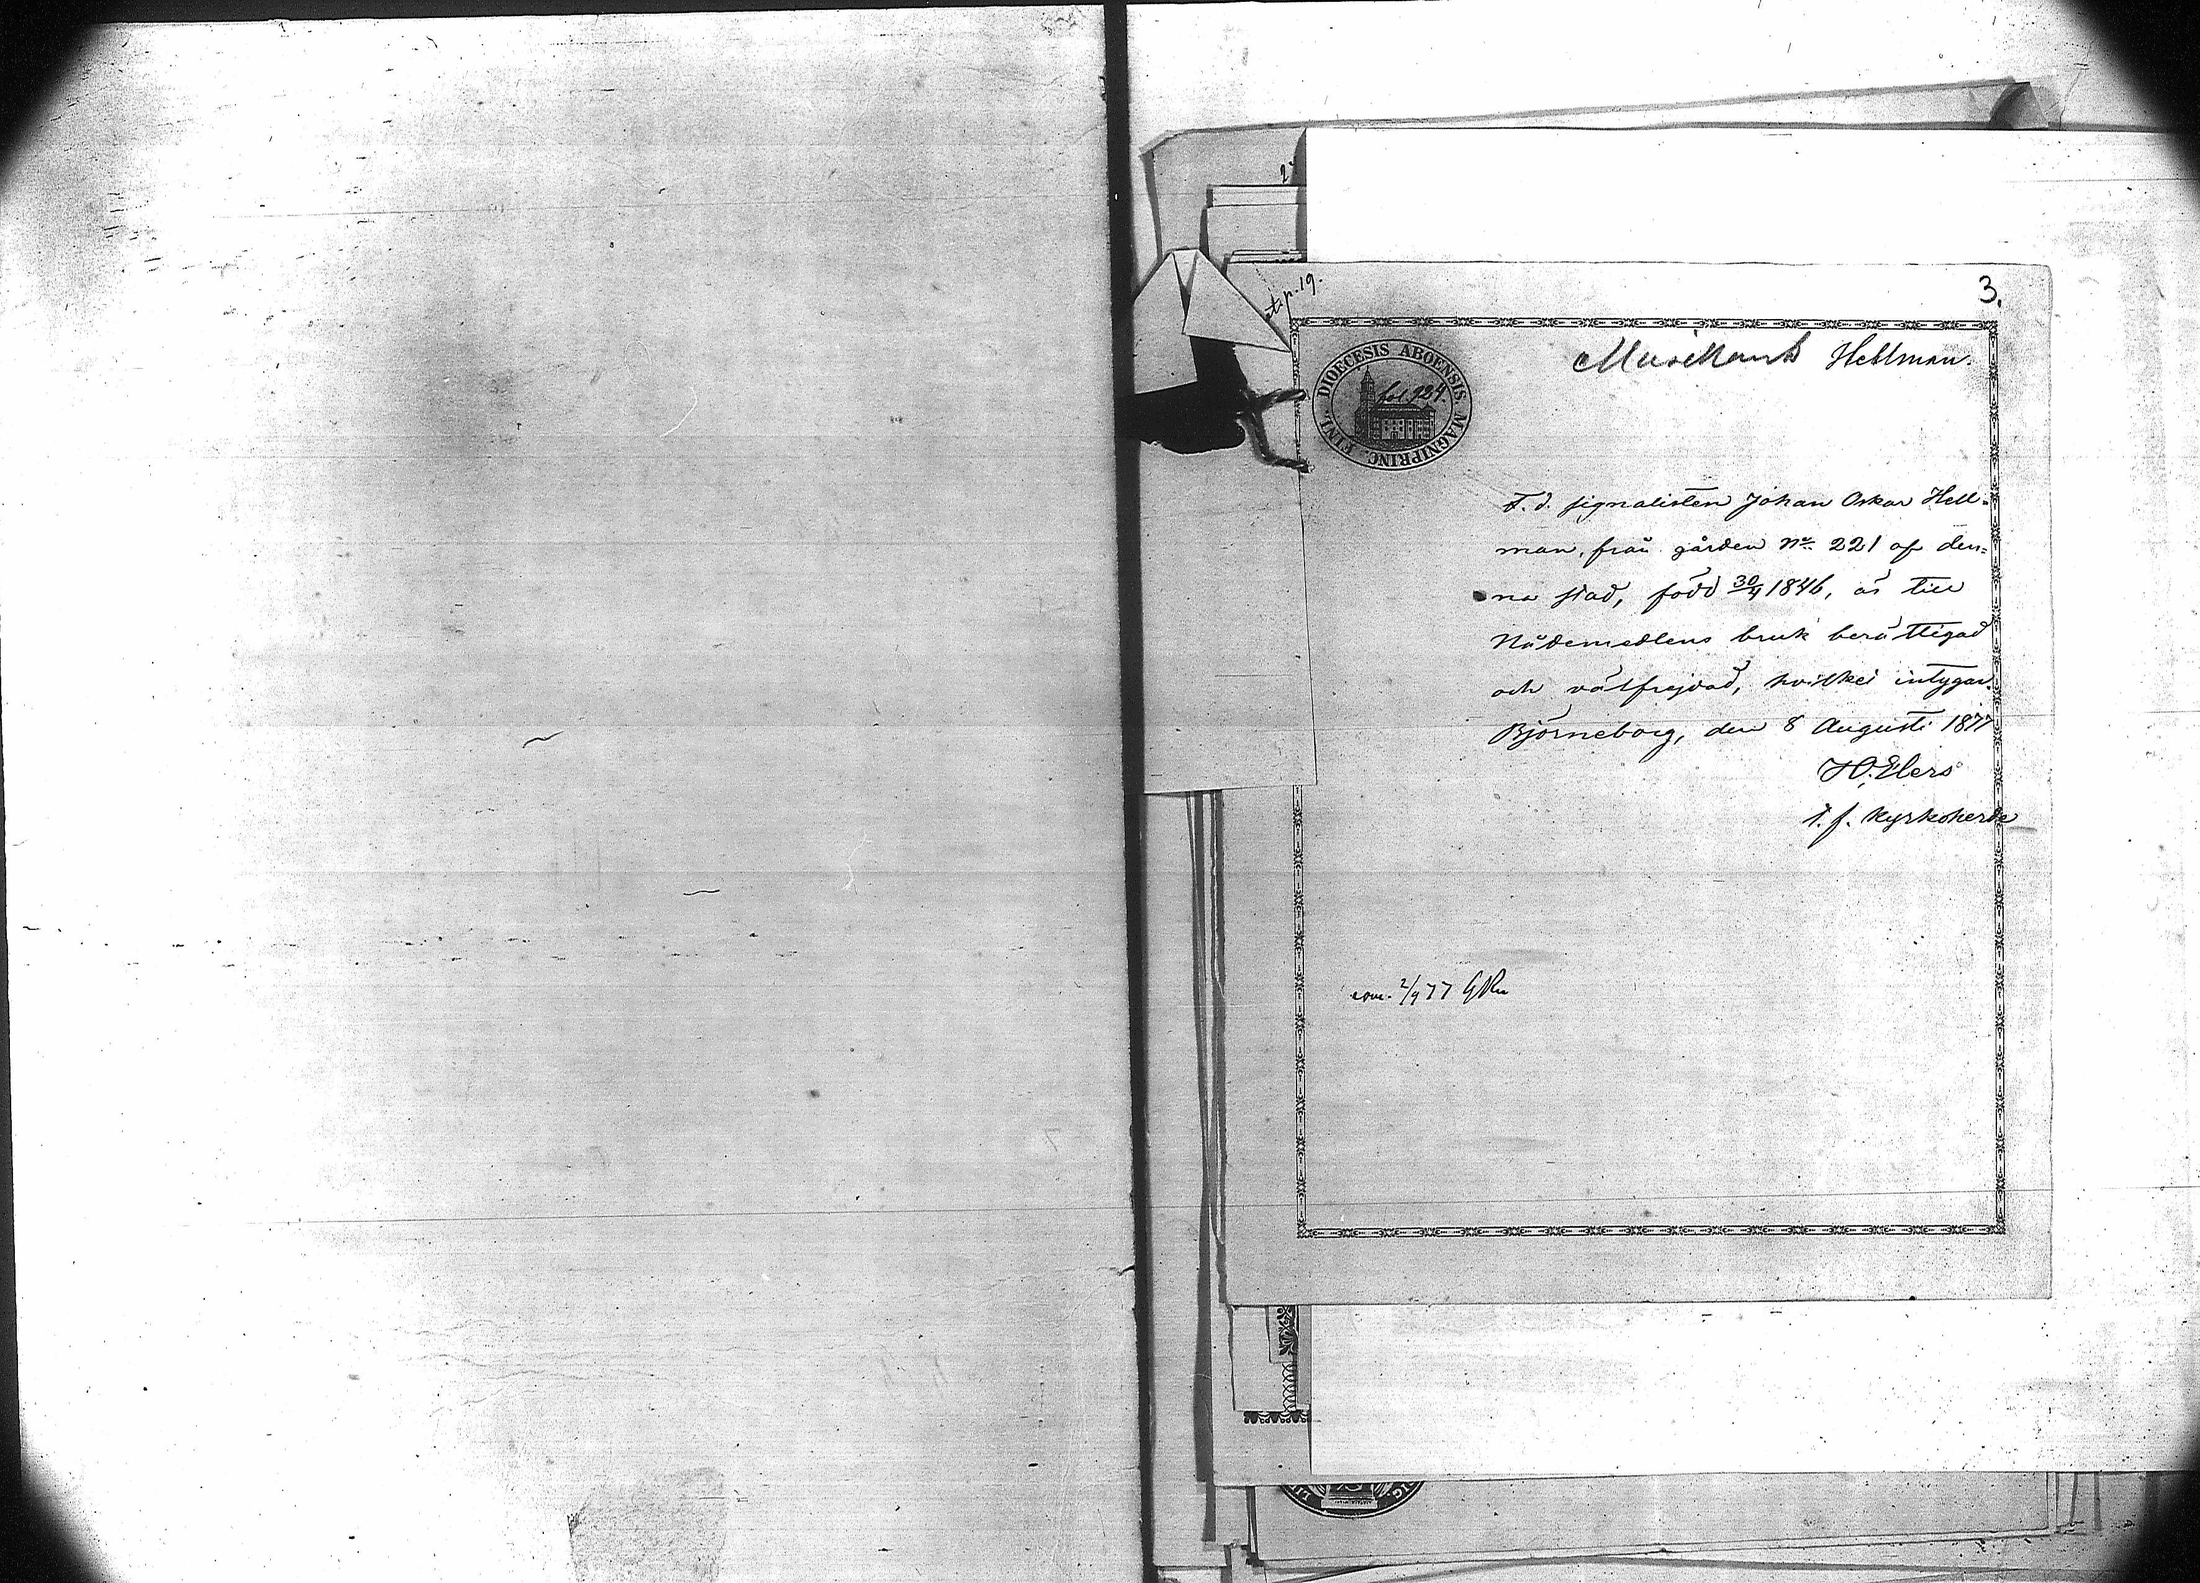 3.
st. p. 19.
Musikant Hellman.
DIOECESIS ABOENSIS MAGNIPRINC. FINL.
fol. 924.
F. d. signalisten Johan Oskar Hell-
man, från gården No. 221 af den-
na stad, född 30/4 1846, är till
Nådemedlens bruk berättigad
och välfrejdad, hvilket intygar.
Björneborg, den 8 Augusti 1877
H. Elers
t. f. Kyrkoherde
2/9 77